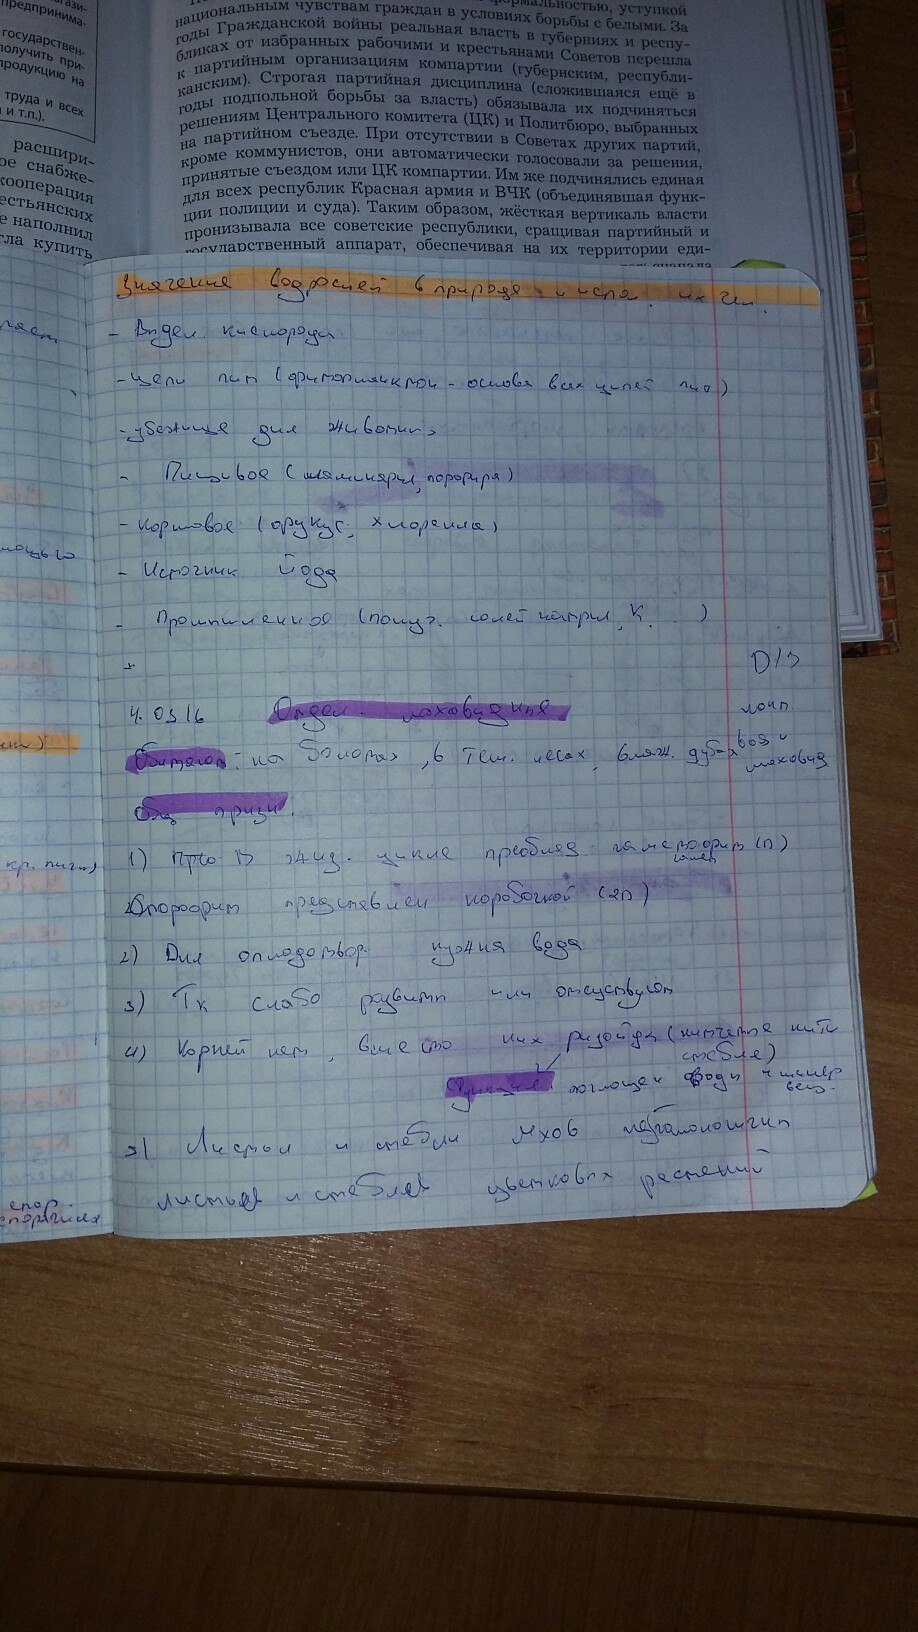 предпринима-
государствен-
получить при-
продукцию на
труда и всех
и т.п.).
расшири-
ое снабже-
кооперация
естьянских
е наполнил
гла купить
формальностью, уступкой
национальным чувствам граждан в условиях борьбы с белыми. За
годы Гражданской войны реальная власть в губерниях и респу-
бликах от избранных рабочими и крестьянами Советов перешла
к партийным организациям компартии (губернским, республи-
канским). Строгая партийная дисциплина (сложившаяся ещё в
годы подпольной борьбы за власть) обязывала их подчиняться
решениям Центрального комитета (ЦК) и Политбюро, выбранных
на партийном съезде. При отсутствии в Советах других партий,
кроме коммунистов, они автоматически голосовали за решения,
принятые съездом или ЦК компартии. Им же подчинялись единая
для всех республик Красная армия и ВЧК (объединявшая функ-
ции полиции и суда). Таким образом, жёсткая вертикаль власти
пронизывала все советские республики, сращивая партийный и
государственный аппарат, обеспечивая на их территории еди-
Значение водрослей в природе и испл. их чел.
- Выдел. кислорода
- цепи пит (фитопланктон - основа всех цепей пит)
- убежище для животных
- Пищевое (ламинария, порфира)
- Кормовое (фукус, хлорелла)
- Источник йода
- Промышленное (получ. солей натрия, К. )
D/з
4.0316 Отдел. моховидные
Обитают: на болотах, в тен. лесах, влаж. дубах
моховид
общ призн:
1) Что в жизн. цикле преоблад гаметофит (n)
Спорофит представлен коробочкой (2n)
2) Для оплодотвор. нужна вода
3) Тк слабо развиты или отсутствуют
4) Корней нет, вместо них ризойды (нитчатые нити стебля)
Функция: поглощен воды и минер вещ.
5) Листья и стебли мхов
листьев и стеблей цветковых растений
кр. пигм)
спор.